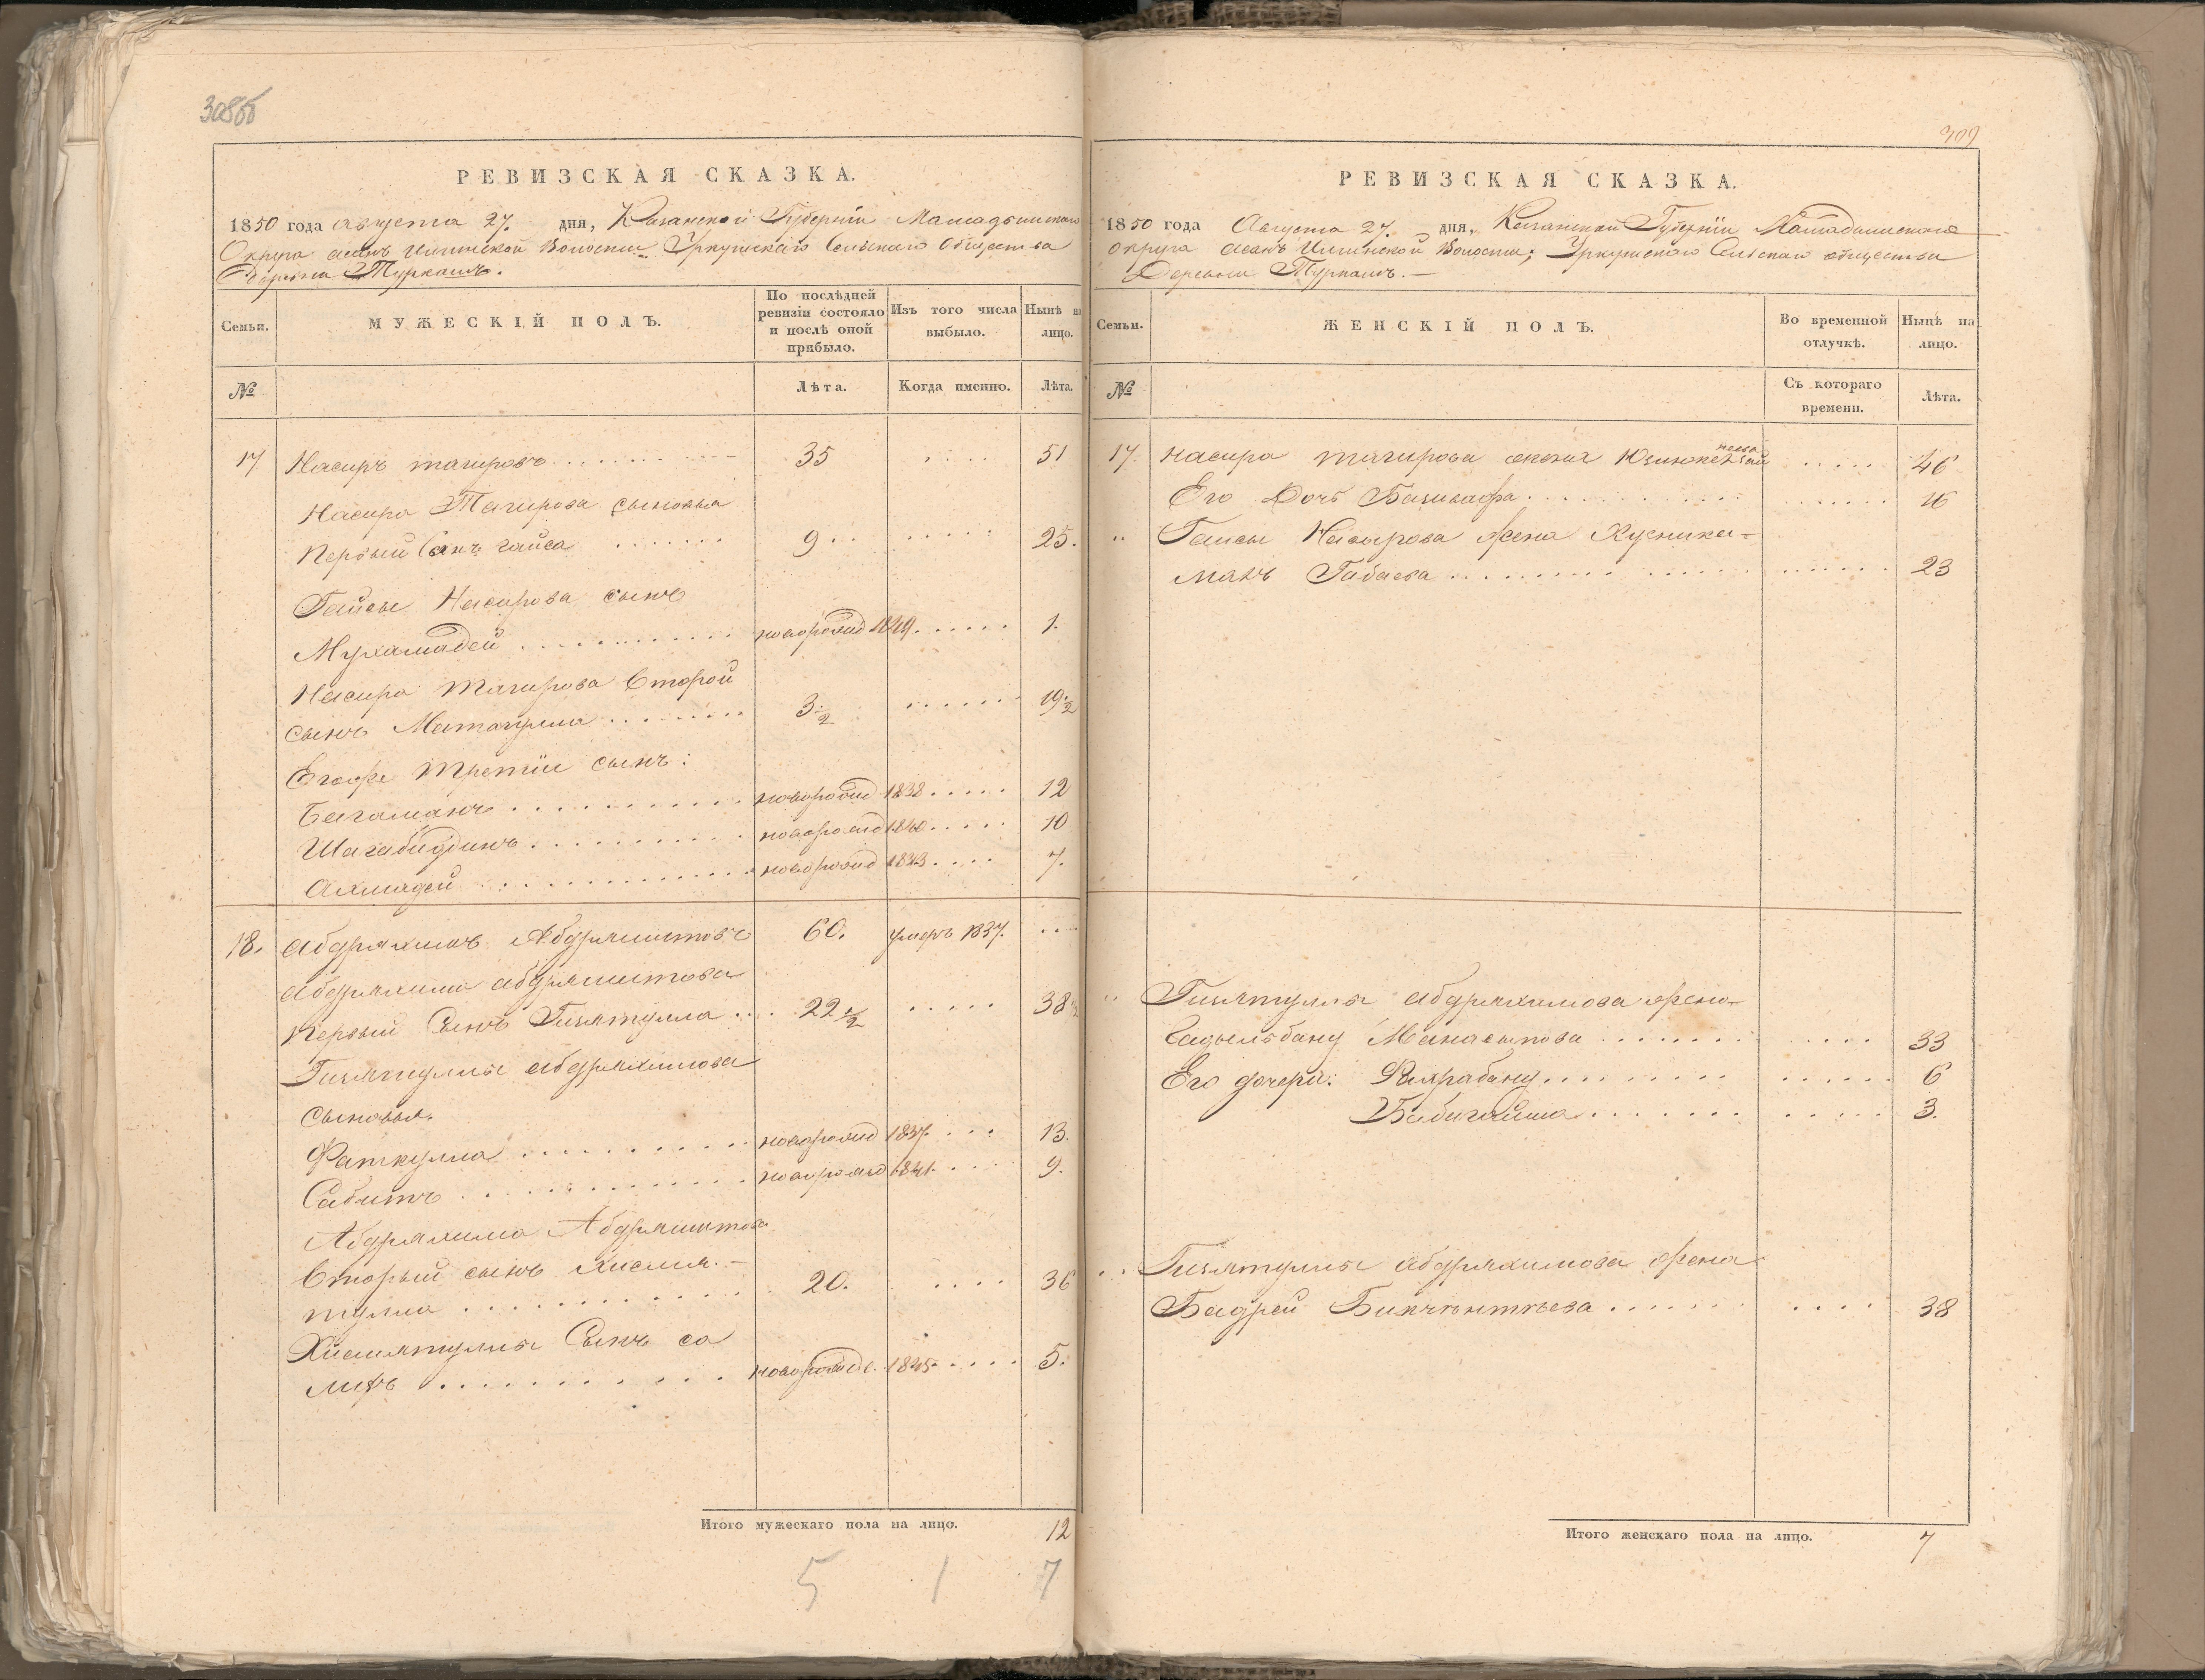 308об
РЕВИЗСКАЯ СКАЗКА.
1850 года августа 27. дня, Казанской Губерніи Мамадышскаго
Округа асанъ Илгинской Волости Уркушскаго Сельскаго Общества
Деревни Туркашъ.
Семьи.
МУЖЕСКІЙ ПОЛЪ.
По послѣдней ревизіи состояло и послѣ оной прибыло.
Изъ того числа выбыло.
Нынѣ на лицо.
№
Лѣта.
Когда именно.
Лѣта.
17 Насыръ тагировъ 35 51
Насыра Тагирова сыновья
Первый Сынъ гайса 9 25.
Гайсы Насырова сынъ
Мухамадей новорожд 1849 1.
Насыра тагирова Второй
сынъ Матагулла 3½ 19½
Егоже третіи сынъ:
Багаманъ новорожд 1838 12
Шагабидинъ новорожд 1840 10
Ахмадей новорожд 1843 7.
18. Абдряхимъ Абдряшитовъ 60. умеръ 1837.
Абдряхима абдряшитова
первый Сынъ Гизятулла 22½ 38½
Гизятуллы абдряхимова
сыновья.
Фаткулла новорожд 1837 13.
Сабитъ новорожд 1841. 9.
Абдряхима Абдряшитова
Вторый сынъ Хисамя-
тулла 20. 36
Хисамятуллы Сынъ са
лихъ новорожд. 1845. 5.
Итого мужескаго пола на лицо. 12
5 1 7
309
РЕВИЗСКАЯ СКАЗКА.
1850 года Августа 27. дня, Казанской Губерніи Мамадышскаго
округа асанъ Илгинской Волости; Уркушскаго Сельскаго общества
Деревни Туркашъ.
Семьи.
ЖЕНСКІЙ ПОЛЪ.
Во временной отлучкѣ.
Нынѣ на лицо.
№
Съ котораго времени.
Лѣта.
17. насыра тагирова жена 46
Его Дочь 16
" Гайсы Насырова Жена Хусника-
малъ Габаева 23
" Гизятуллы абдряхимова жена
Бану Манасыпова 33
Его дочери: Фахрабану 6
Бибигайша 3.
Гизятуллы абдряхимова жена
Бадрей 38
Итого женскаго пола на лицо. 7